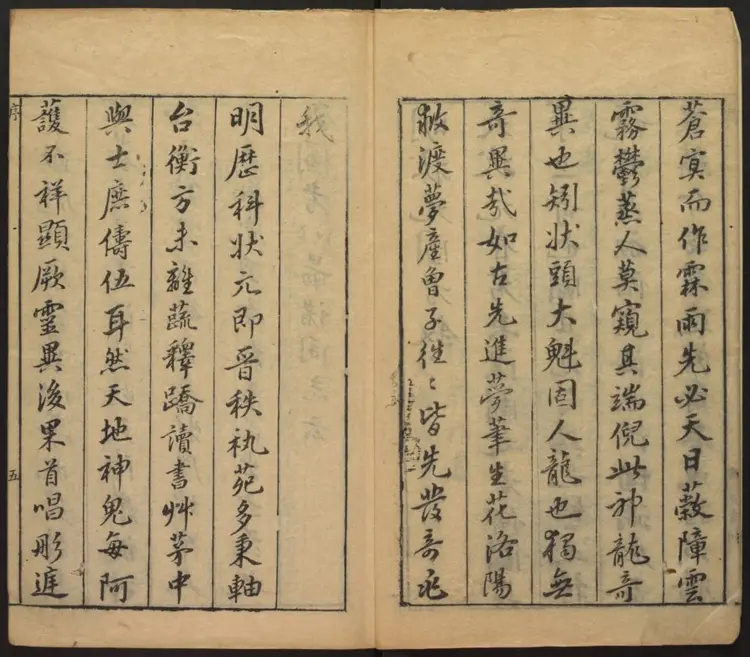 蒼冥而作霖雨先必天日蔽障雲
霧鬱蒸人莫窺其端倪此神龍奇
異也矧狀頭大魁固人龍也獨無
奇異哉如古先進夢筆生花洛陽
救渡夢產曾子徃〻皆先發奇兆
我
明歷科狀元即晉秩秇苑多秉軸
台衡方未離蔬釋蹻讀書艸茅中
與士庶儔伍耳然天地神鬼每阿
護不祥顯厥靈異後果首唱彤廷
序
五